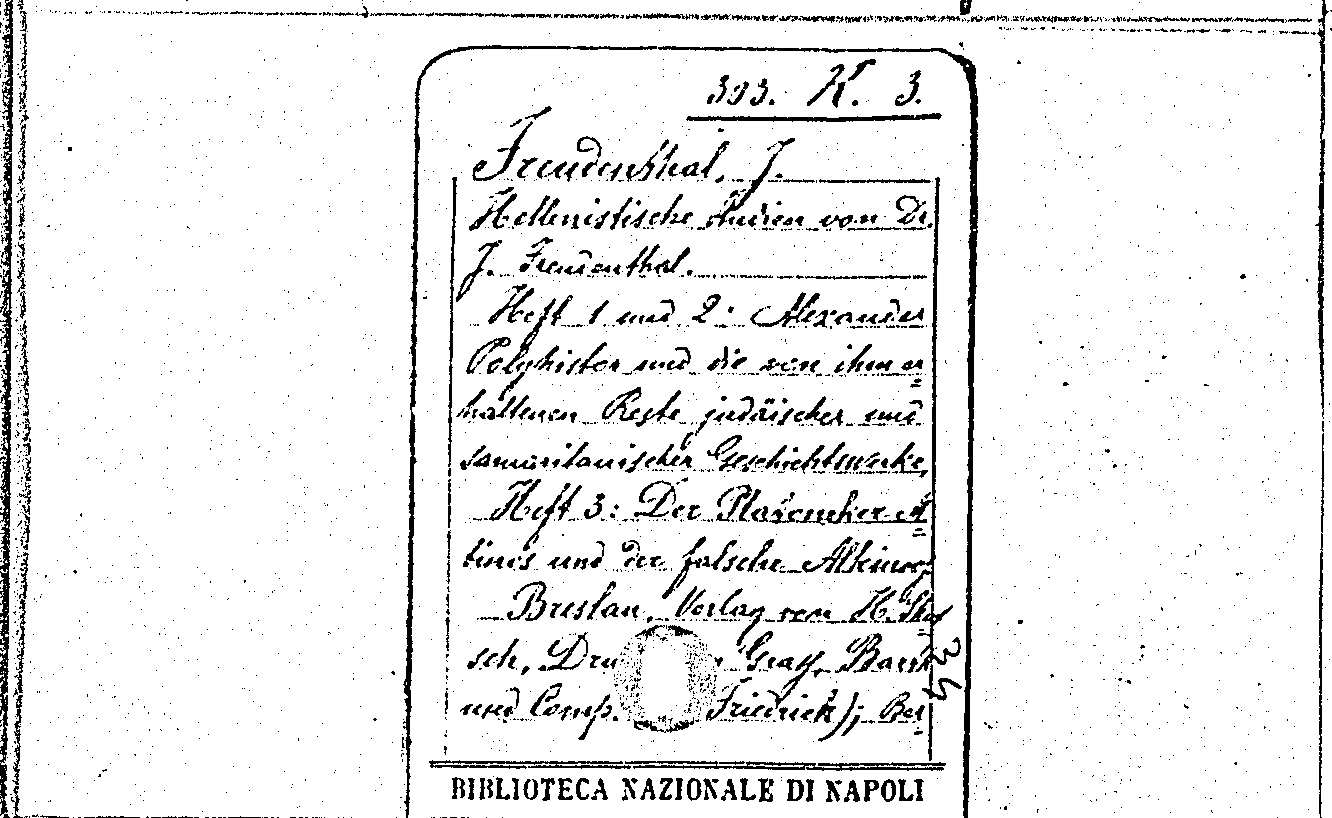 303. K. 3.
Freudenthal, J.
Hellenistische Studien von Dr.
J. Freudenthal.
Heft 1 und 2: Alexander
Polyhistor und die von ihm er
haltenen Reste judäischer und
samaritanischer Geschichtswerke,
Heft 3: Der Platoniker Al
binos und der falsche Alkinoos
Breslau, Verlag von H. Sku
sch, Dru Grass, Barth
und Comp. Friedrich); Ber
34
BIBLIOTECA NAZIONALE DI NAPOLI